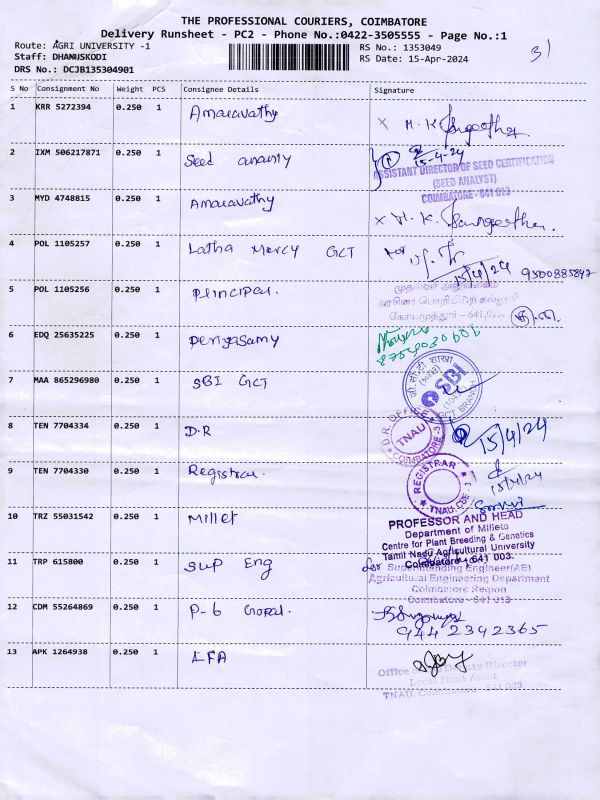 THE PROFESSIONAL COURIERS, COIMBATORE
Delivery Runsheet - PC2 - Phone No.:0422-3505555 - Page No.:1
Route: AGRI UNIVERSITY -1
RS No.: 1353049
31
Staff: DHANUSKODI
RS Date: 15-Apr-2024
DRS No.: DCJB135304901
S No Consignment No Weight PCS Consignee Details Signature
1 KRR 5272394 0.250 1 Amaravathy
X M. K. Sangeetha
2 IXM 506217871 0.250 1 Seed
15-4-24
ASSISTANT DIRECTOR OF SEED CERTIFICATION
(SEED ANALYST)
COIMBATORE - 641 013
3 MYD 4748815 0.250 1 Amaravathy
X M. K. Sangeetha.
4 POL 1105257 0.250 1 Latha Mercy GCT
15/4/24 9500885842
5 POL 1105256 0.250 1 principal.
முதல்வர் அலுவலகம்
அரசினர் பொறியியற் கல்லூரி
கோயமுத்தூர் - 641
6 EDQ 25635225 0.250 1 periyasamy
7 MAA 865296980 0.250 1 SBI GCT
SBI
GCT BRANCH
8 TEN 7704334 0.250 1 D.R
D.R. OFFICE
TNAU
COIMBATORE-3
15/4/24
9 TEN 7704330 0.250 1 Registrar.
REGISTRAR
TNAU, CBE - 3
15/4/24
10 TRZ 55031542 0.250 1 Millet
PROFESSOR AND HEAD
Department of Millets
Centre for Plant Breeding & Genetics
Tamil Nadu Agricultural University
Coimbatore - 641 003.
11 TRP 615800 0.250 1 Sup Eng
for Superintending Engineer(AE)
Agricultural Engineering Department
Coimbatore Region
Coimbatore - 641 013
12 CDM 55264869 0.250 1 P-6 Gopal.
9442342365
13 APK 1264938 0.250 1 LFA
Office of Deputy Director
Local Fund Audit
TNAU, Coimbatore - 641 003